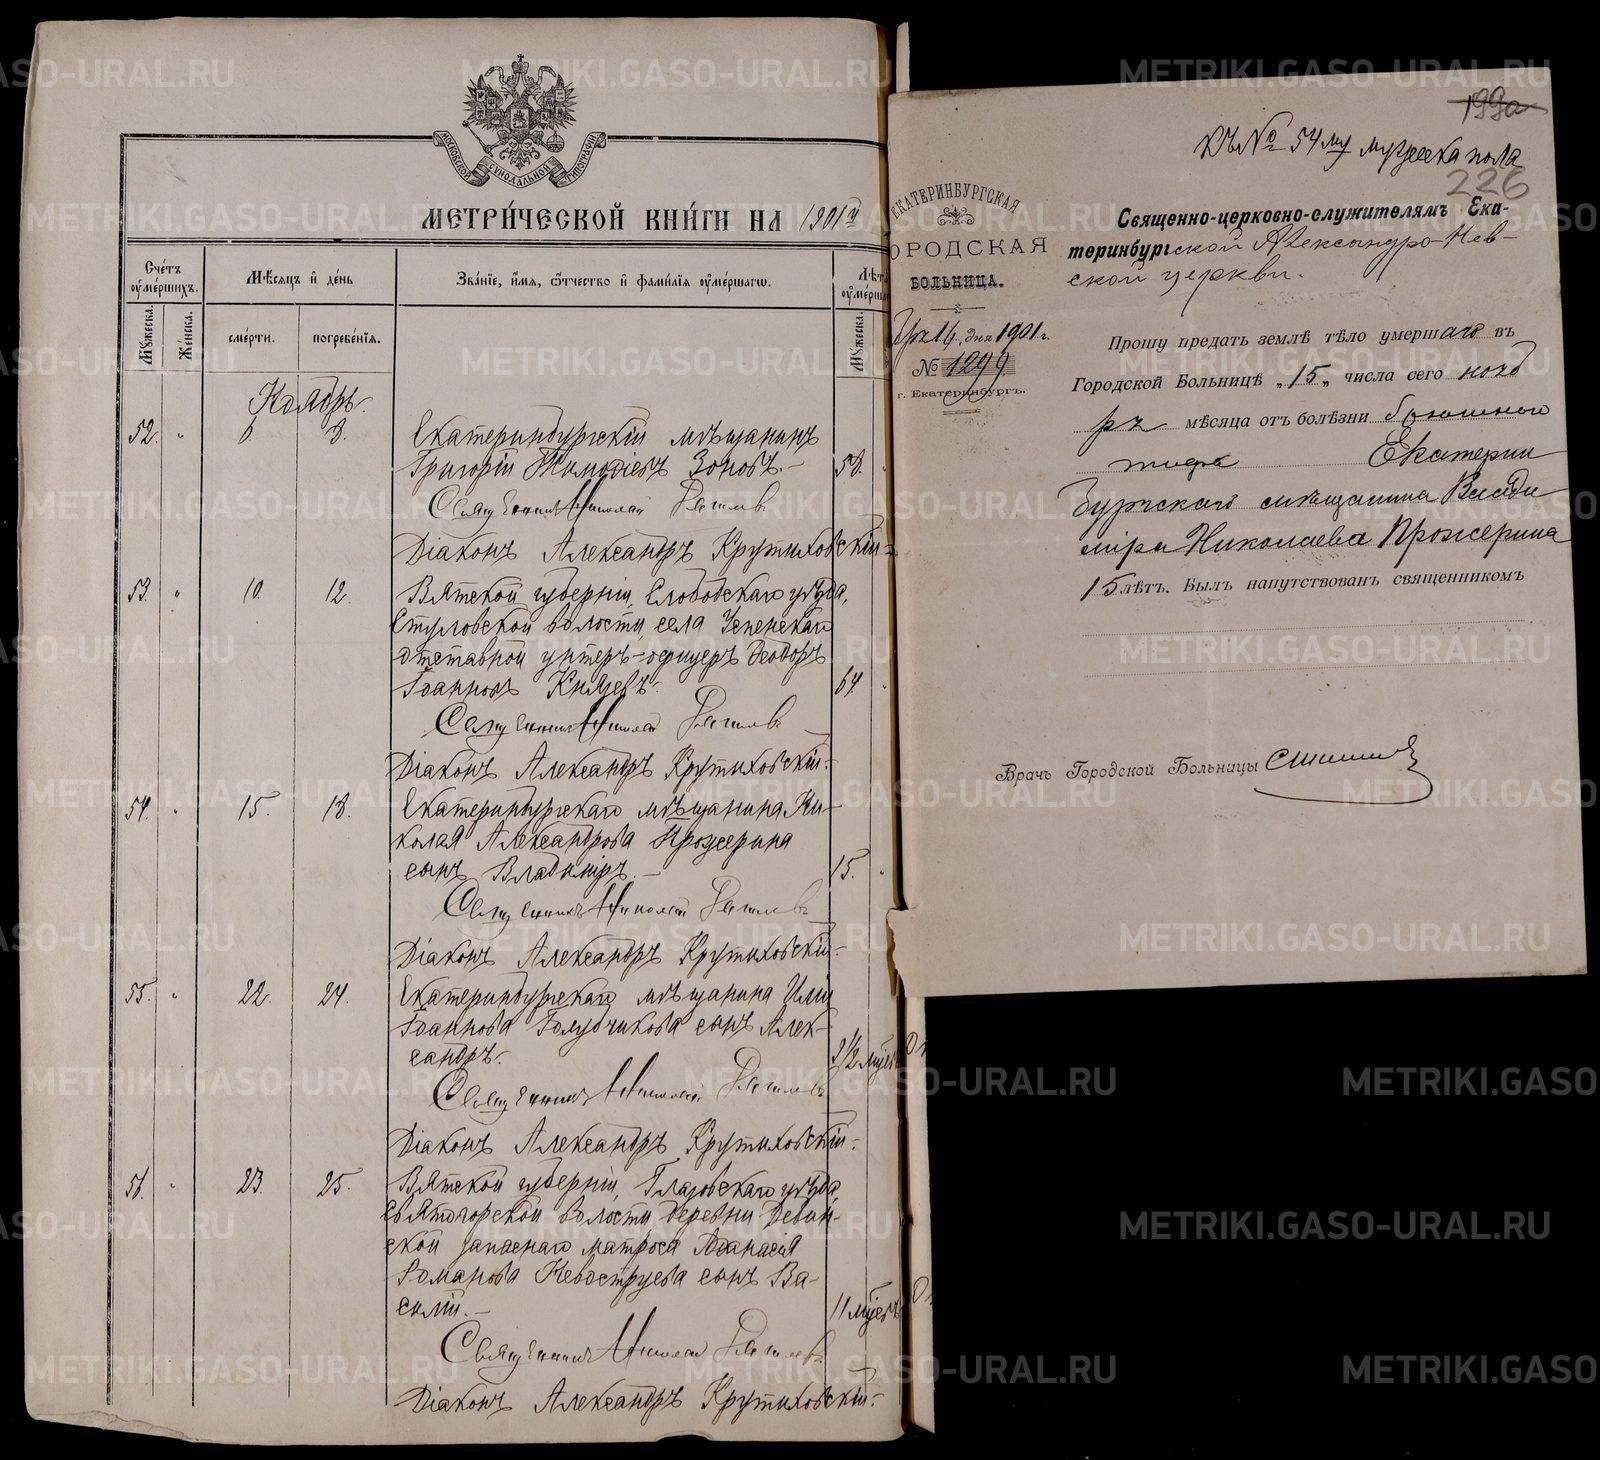 МОСКОВСКОЙ СѴНОДАЛЬНОЙ ТИПОГРАФІИ
МЕТРИ́ЧЕСКОЙ КНИ́ГИ НА 1901й
Сче́тъ ᲂумéршихъ.
Мѣ́сяцъ и҆ дéнь
Зва́нїе, и҆́мѧ, ѻ҆́тчество и҆ фами́лїѧ ᲂумéршагѡ.
Лѣт
ᲂумéрша
Мꙋ́жеска.
Же́нска.
смéрти.
погребе́нїѧ.
Мꙋ́жеска.
Ноябрь.
52. " 6 8. Екатеринбургскій мѣщанинъ
Григорій Тимофіевъ Зоновъ. — 58. "
Священникъ Николай
Діаконъ Александръ Крутиховскій.
53. " 10. 12. Вятской губерніи, Слободскаго уѣзда,
Стуловской волости, села Успенскаго
отставной унтеръ-офицеръ Ѳеодоръ
Іоанновъ Князевъ. 64 "
Священникъ Николай
Діаконъ Александръ Крутиховскій.
54. " 15. 18. Екатеринбургскаго мѣщанина Ни-
колая Александрова Прожерина
сынъ Владиміръ. — 15. "
Священникъ Николай
Діаконъ Александръ Крутиховскій.
55. " 22. 24. Екатеринбургскаго мѣщанина Иліи
Іоаннова Голубчикова сынъ Алек-
сандръ. 2½ мѣс
Священникъ Николай
Діаконъ Александръ Крутиховскій.
56. " 23. 25. Вятской губерніи, Глазовскаго уѣзда,
Святогорской волости деревни
запаснаго матроса Аѳанасія
Романова Невоструева сынъ Ва-
силій. — 11 мѣсяцъ
Священникъ Николай
Діаконъ Александръ Крутиховскій.
199а
Къ № 54му мужеска пола
226
ЕКАТЕРИНБУРГСКАЯ
ОРОДСКАЯ
БОЛЬНИЦА.
бря 16, дня 1901 г.
№ 1299
г. Екатеринбургъ.
Священно-церковно-служителямъ Ека-
теринбургской Александро-Нев-
ской церкви.
Прошу предать землѣ тѣло умершаго въ
Городской Больницѣ „15„ числа сего нояб
ря мѣсяца отъ болѣзни брюшного
тифа Екатерин
бургскаго мѣщанина Влади
міра Николаева Прожерина
15 лѣтъ. Былъ напутствованъ священникомъ
Врачъ Городской Больницы
METRIKI.GASO-URAL.RU